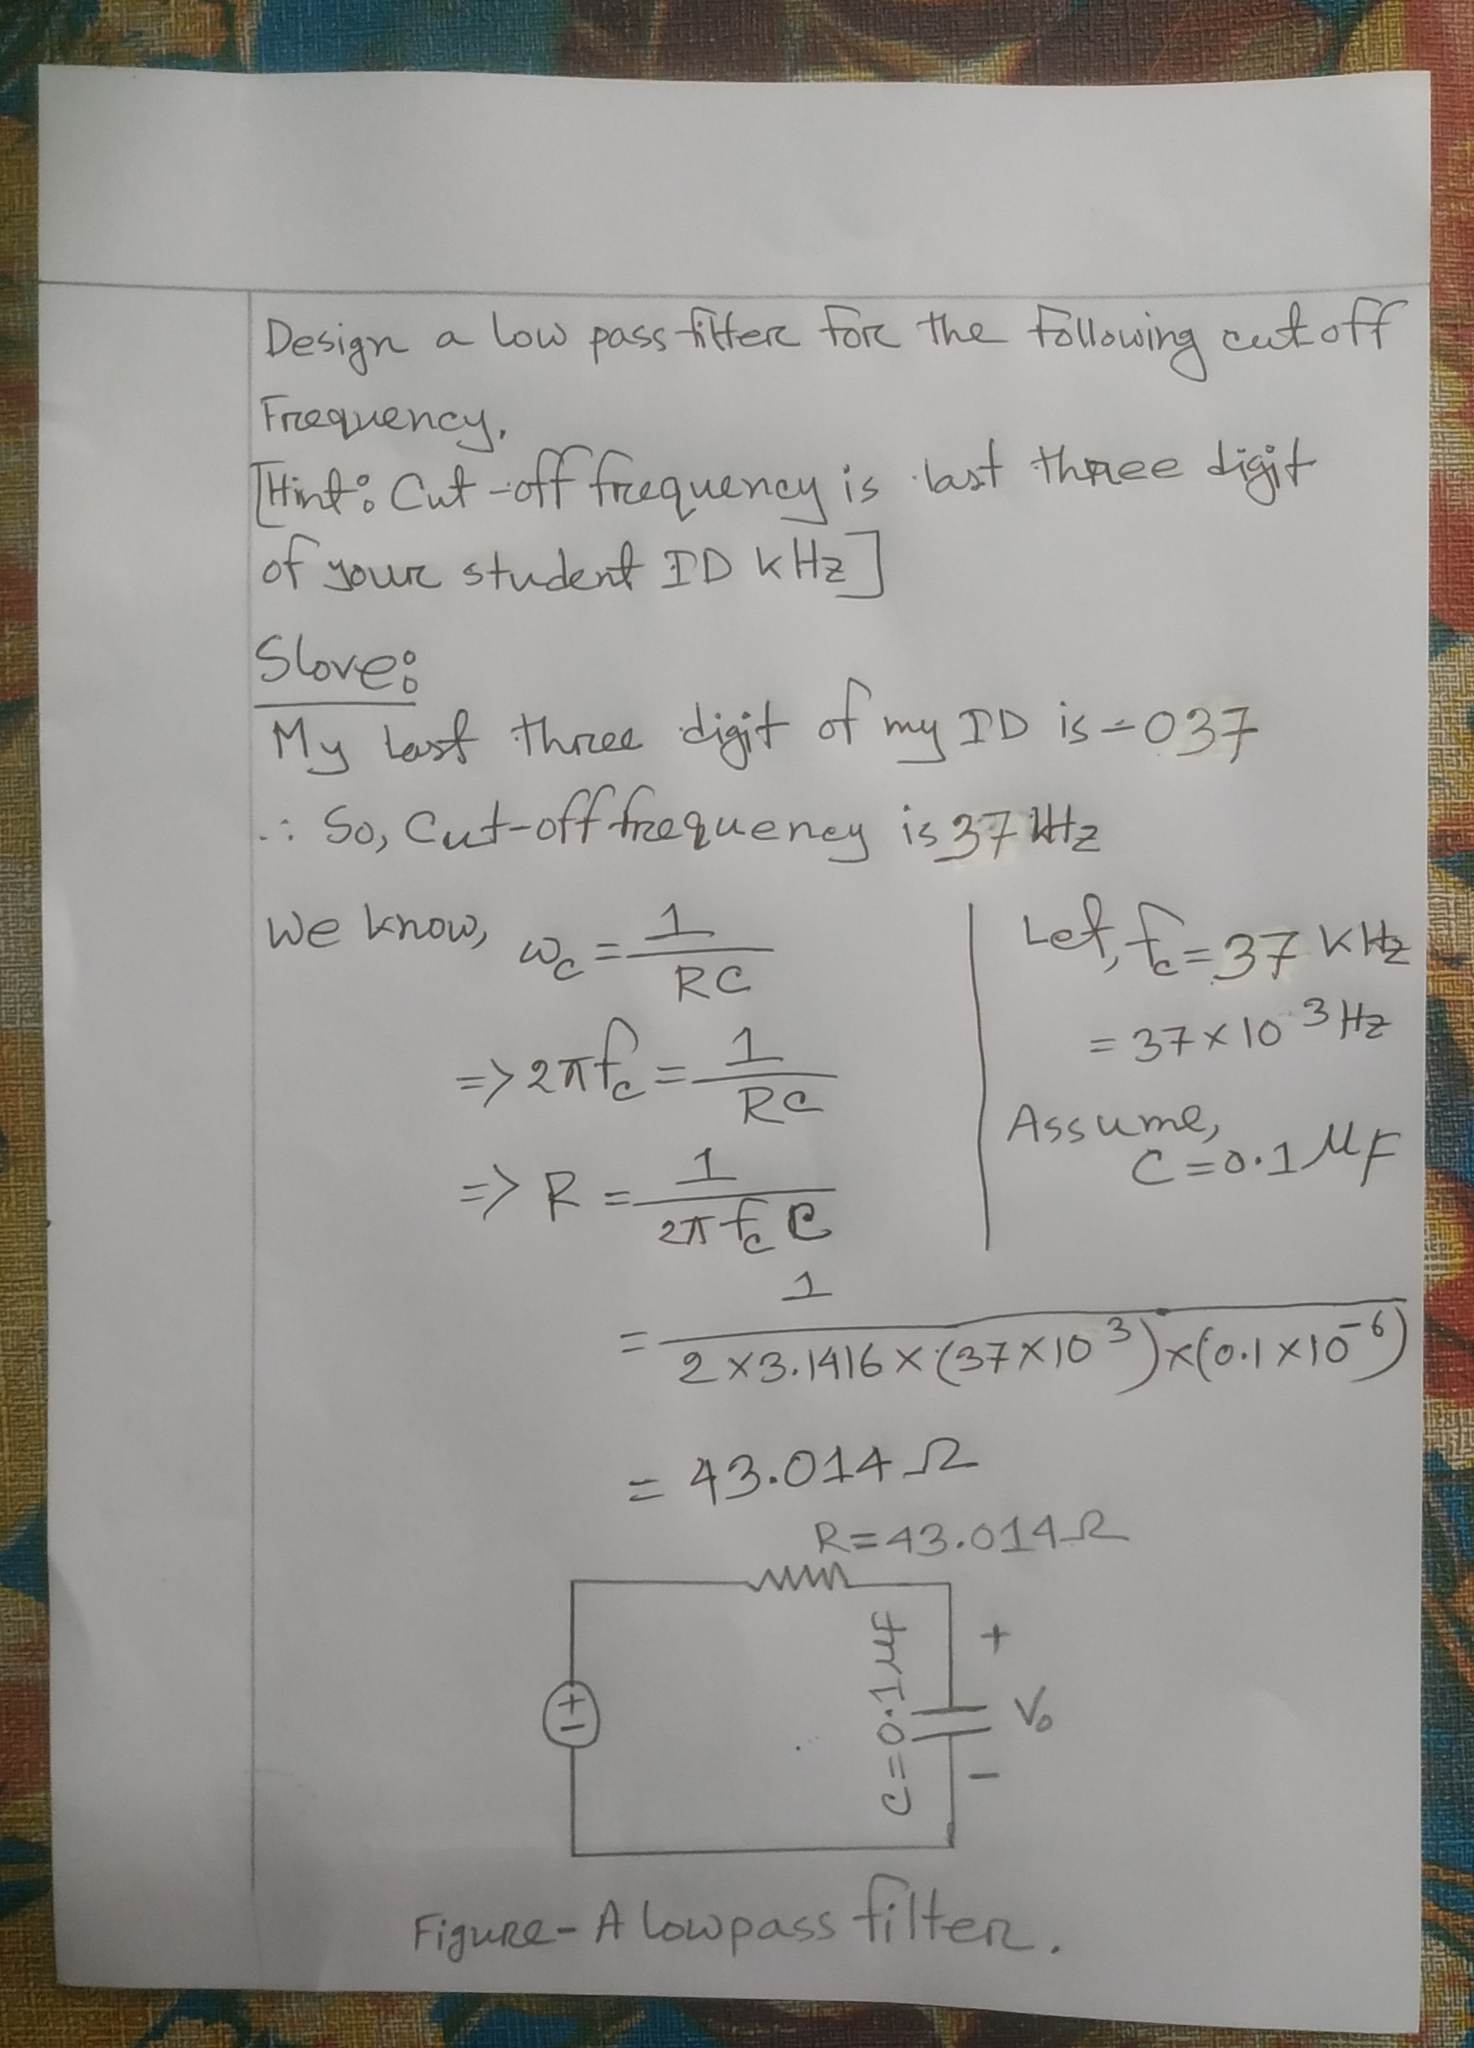 Design a low pass filter for the following cut off
Frequency.
[Hint: Cut-off frequency is last three digit
of your student ID kHz]
Slove:
My last three digit of my ID is - 037
∴ So, Cut-off frequency is 37 kHz
We know, ωc = 1/RC
=> 2πfc = 1/RC
=> R = 1/2πfcC
= 1/2×3.1416×(37×10^3)×(0.1×10^-6)
= 43.014 Ω
Let, fc = 37 kHz
= 37×10^3 Hz
Assume,
C = 0.1 μF
R = 43.014 Ω
C = 0.1 μF
+
V₀
-
+
-
Figure - A low pass filter.